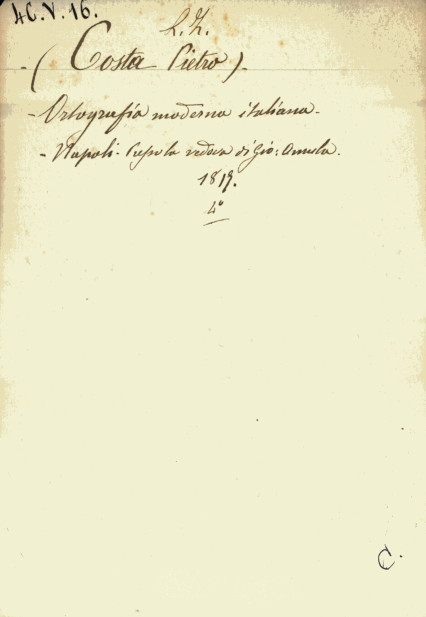 4C.V.16.
L.Z.
- (Costa Pietro).
- Ortografia moderna italiana -
- Napoli - presso la vedova di Gio: Amula.
1819.
4°
C.